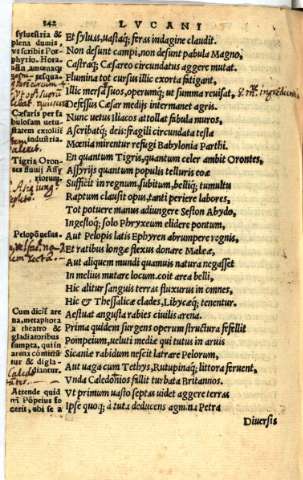 242
LVCANI
Et syluas, uastasq; feras indagine claudit.
Non desunt campi, non desunt pabula Magno,
Castraq; Cæsareo circundatus aggere mutat.
Flumina tot cursus illic exorta fatigant,
Illic mersa suos, operumq; ut summa reuisat,
Defessus Cæsar medijs intermanet agris.
Nunc uetus Iliacos attollat fabula muros,
Ascribatq; deis: fragili circundata testa
Mœnia mirentur refugi Babylonia Parthi.
En quantum Tigris, quantum celer ambit Orontes,
Assyrijs quantum populis telluris eoæ
Sufficit in regnum, subitum, belliq; tumultu
Raptum clausit opus, tanti periere labores,
Tot potuere manus adiungere Seston Abydo,
Ingestoq; solo Phryxeum elidere pontum,
Aut Pelopis latis Ephyren abrumpere regnis,
Et ratibus longæ flexus donare Maleæ,
Aut aliquem mundi quamuis natura negasset
In melius mutare locum. coit area belli,
Hic alitur sanguis terras fluxurus in omnes,
Hic & Thessalicæ clades, Libycæq; tenentur.
Aestuat angusta rabies ciuilis arena.
Prima quidem surgens operum structura fefellit
Pompeium, ueluti mediæ qui tutus in aruis
Sicaniæ rabidum nescit latrare Pelorum,
Aut uaga cum Tethys, Rutupinaq; littora feruent,
Vnda Caledonios fallit turbata Britannos.
Vt primum uasto septas uidet aggere terras
Ipse quoq; à tuta deducens agmina Petra
Diuersis
syluestria &
plena dumis,
Cæsaris per fa
industria.
Tigris
Oron
Peloponesus.
Cum dicit are
na, metaphora
a theatro &
gladiatoribus
sumpta, qui in
arena cōmitte
Attende quid
m̄ Pōpeius fe
cerit, ubi se a